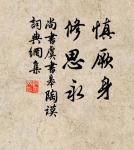 慎厥身
修思永
尚書虞書皋陶謨
詞典網集